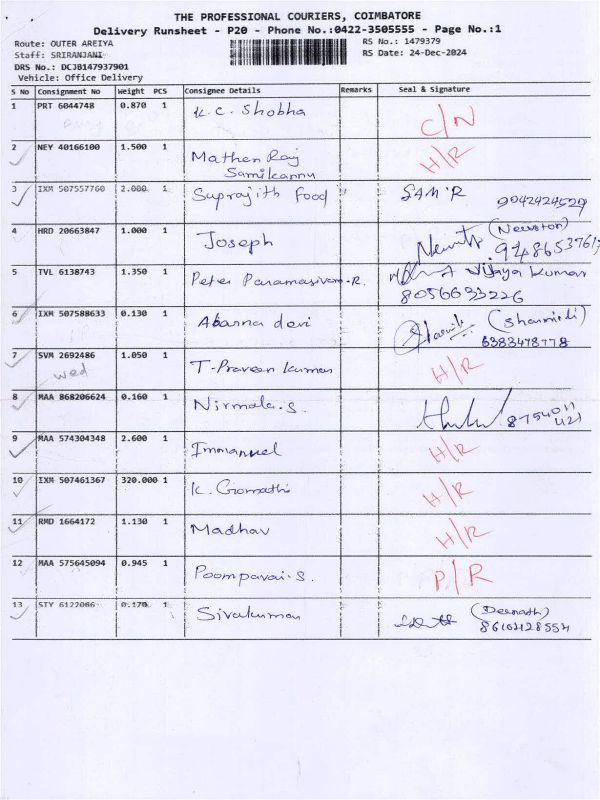 THE PROFESSIONAL COURIERS, COIMBATORE
Delivery Runsheet - P20 - Phone No.:0422-3505555 - Page No.:1
Route: OUTER AREIYA
RS No.: 1479379
Staff: SRIRANJANI
RS Date: 24-Dec-2024
DRS No.: DCJB147937901
Vehicle: Office Delivery
S No Consignment No Weight PCS Consignee Details Remarks Seal & Signature
1 PRT 6044748 0.870 1 K.C. Shobha C/N
2 NEY 40166100 1.500 1 Mathen Raj H/R
Samikannu
3 IXM 507557760 2.000 1 Suprajith Food " SAM'R 9042424529
4 HRD 20663847 1.000 1 Joseph (Newston)
5 TVL 6138743 1.350 1 Peter Paramasivam.R. Vijaya Kumar
8056633226
6 IXM 507588633 0.130 1 Abarna devi (Sharmili)
6383478778
7 SVM 2692486 1.050 1 T-Praveen Kumar H/R
wed
8 MAA 868206624 0.160 1 Nirmala.S. 8754011
421
9 MAA 574304348 2.600 1 Immanuel H/R
10 IXM 507461367 320.000 1 K. Gomathi H/R
11 RMD 1664172 1.130 1 Madhav H/R
12 MAA 575645094 0.945 1 Poompavai.S. P/R
13 STY 6122066 0.170 1 Sivakumar (Deenath)